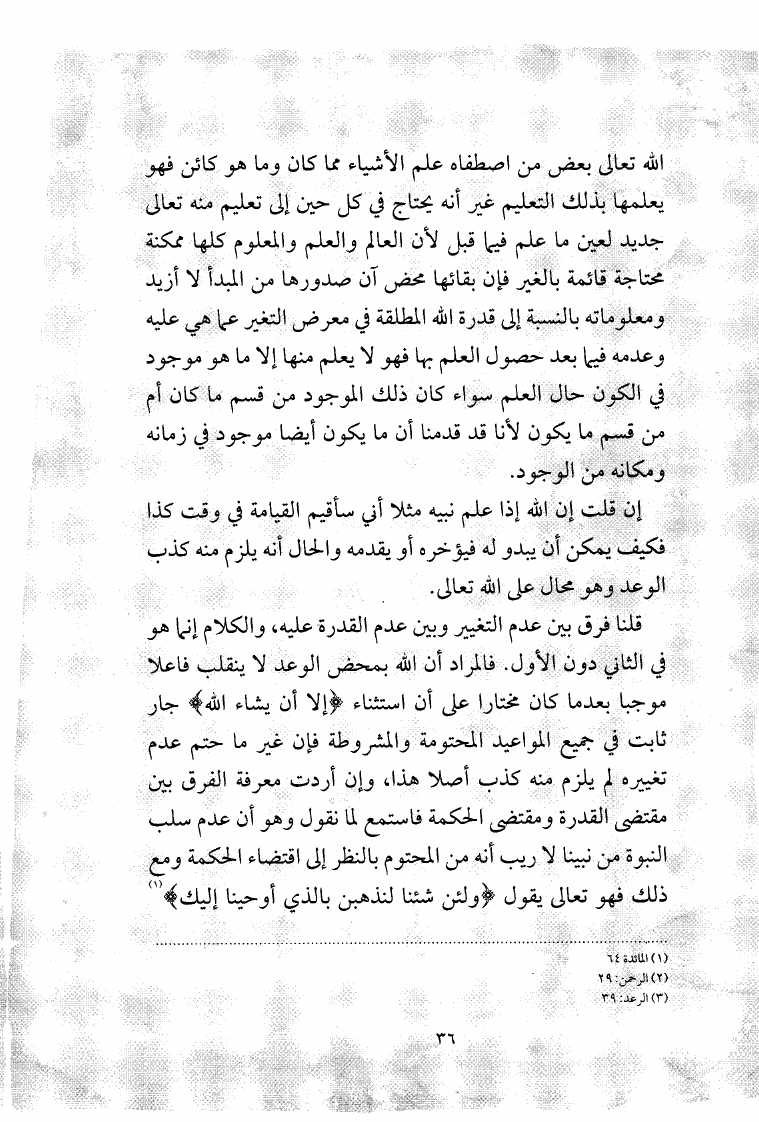 الله تعالى بعض من اصطفاه علم الأشياء مما كان وما هو كائن فهو
يعلمها بذلك التعليم غير أنه يحتاج في كل حين إلى تعليم منه تعالى
جديد لعين ما علم فيما قبل لأن العالم والعلم والمعلوم كلها ممكنة
محتاجة قائمة بالغير فإن بقائها محض آن صدورها من المبدأ لا أزيد
ومعلوماته بالنسبة إلى قدرة الله المطلقة في معرض التغير عما هي عليه
وعدمه فيما بعد حصول العلم بها فهو لا يعلم منها إلا ما هو موجود
في الكون حال العلم سواء كان ذلك الموجود من قسم ما كان أم
من قسم ما يكون لأنا قد قدمنا أن ما يكون أيضا موجود في زمانه
ومكانه من الوجود.
إن قلت إن الله إذا علم نبيه مثلا أني سأقيم القيامة في وقت كذا
فكيف يمكن أن يبدو له فيؤخره أو يقدمه والحال أنه يلزم منه كذب
الوعد وهو محال على الله تعالى.
قلنا فرق بين عدم التغيير وبين عدم القدرة عليه، والكلام إنما هو
في الثاني دون الأول. فالمراد أن الله بمحض الوعد لا ينقلب فاعلا
موجبا بعدما كان مختارا على أن استثناء ﴿إلا أن يشاء الله﴾ جار
ثابت في جميع المواعيد المحتومة والمشروطة فإن غير ما حتم عدم
تغييره لم يلزم منه كذب أصلا هذا، وإن أردت معرفة الفرق بين
مقتضى القدرة ومقتضى الحكمة فاستمع لما نقول وهو أن عدم سلب
النبوة من نبينا لا ريب أنه من المحتوم بالنظر إلى اقتضاء الحكمة ومع
ذلك فهو تعالى يقول ﴿ولئن شئنا لنذهبن بالذي أوحينا إليك﴾(١)
(١) المائدة ٦٤
(٢) الرحمن: ٢٩
(٣) الرعد: ٣٩
٣٦